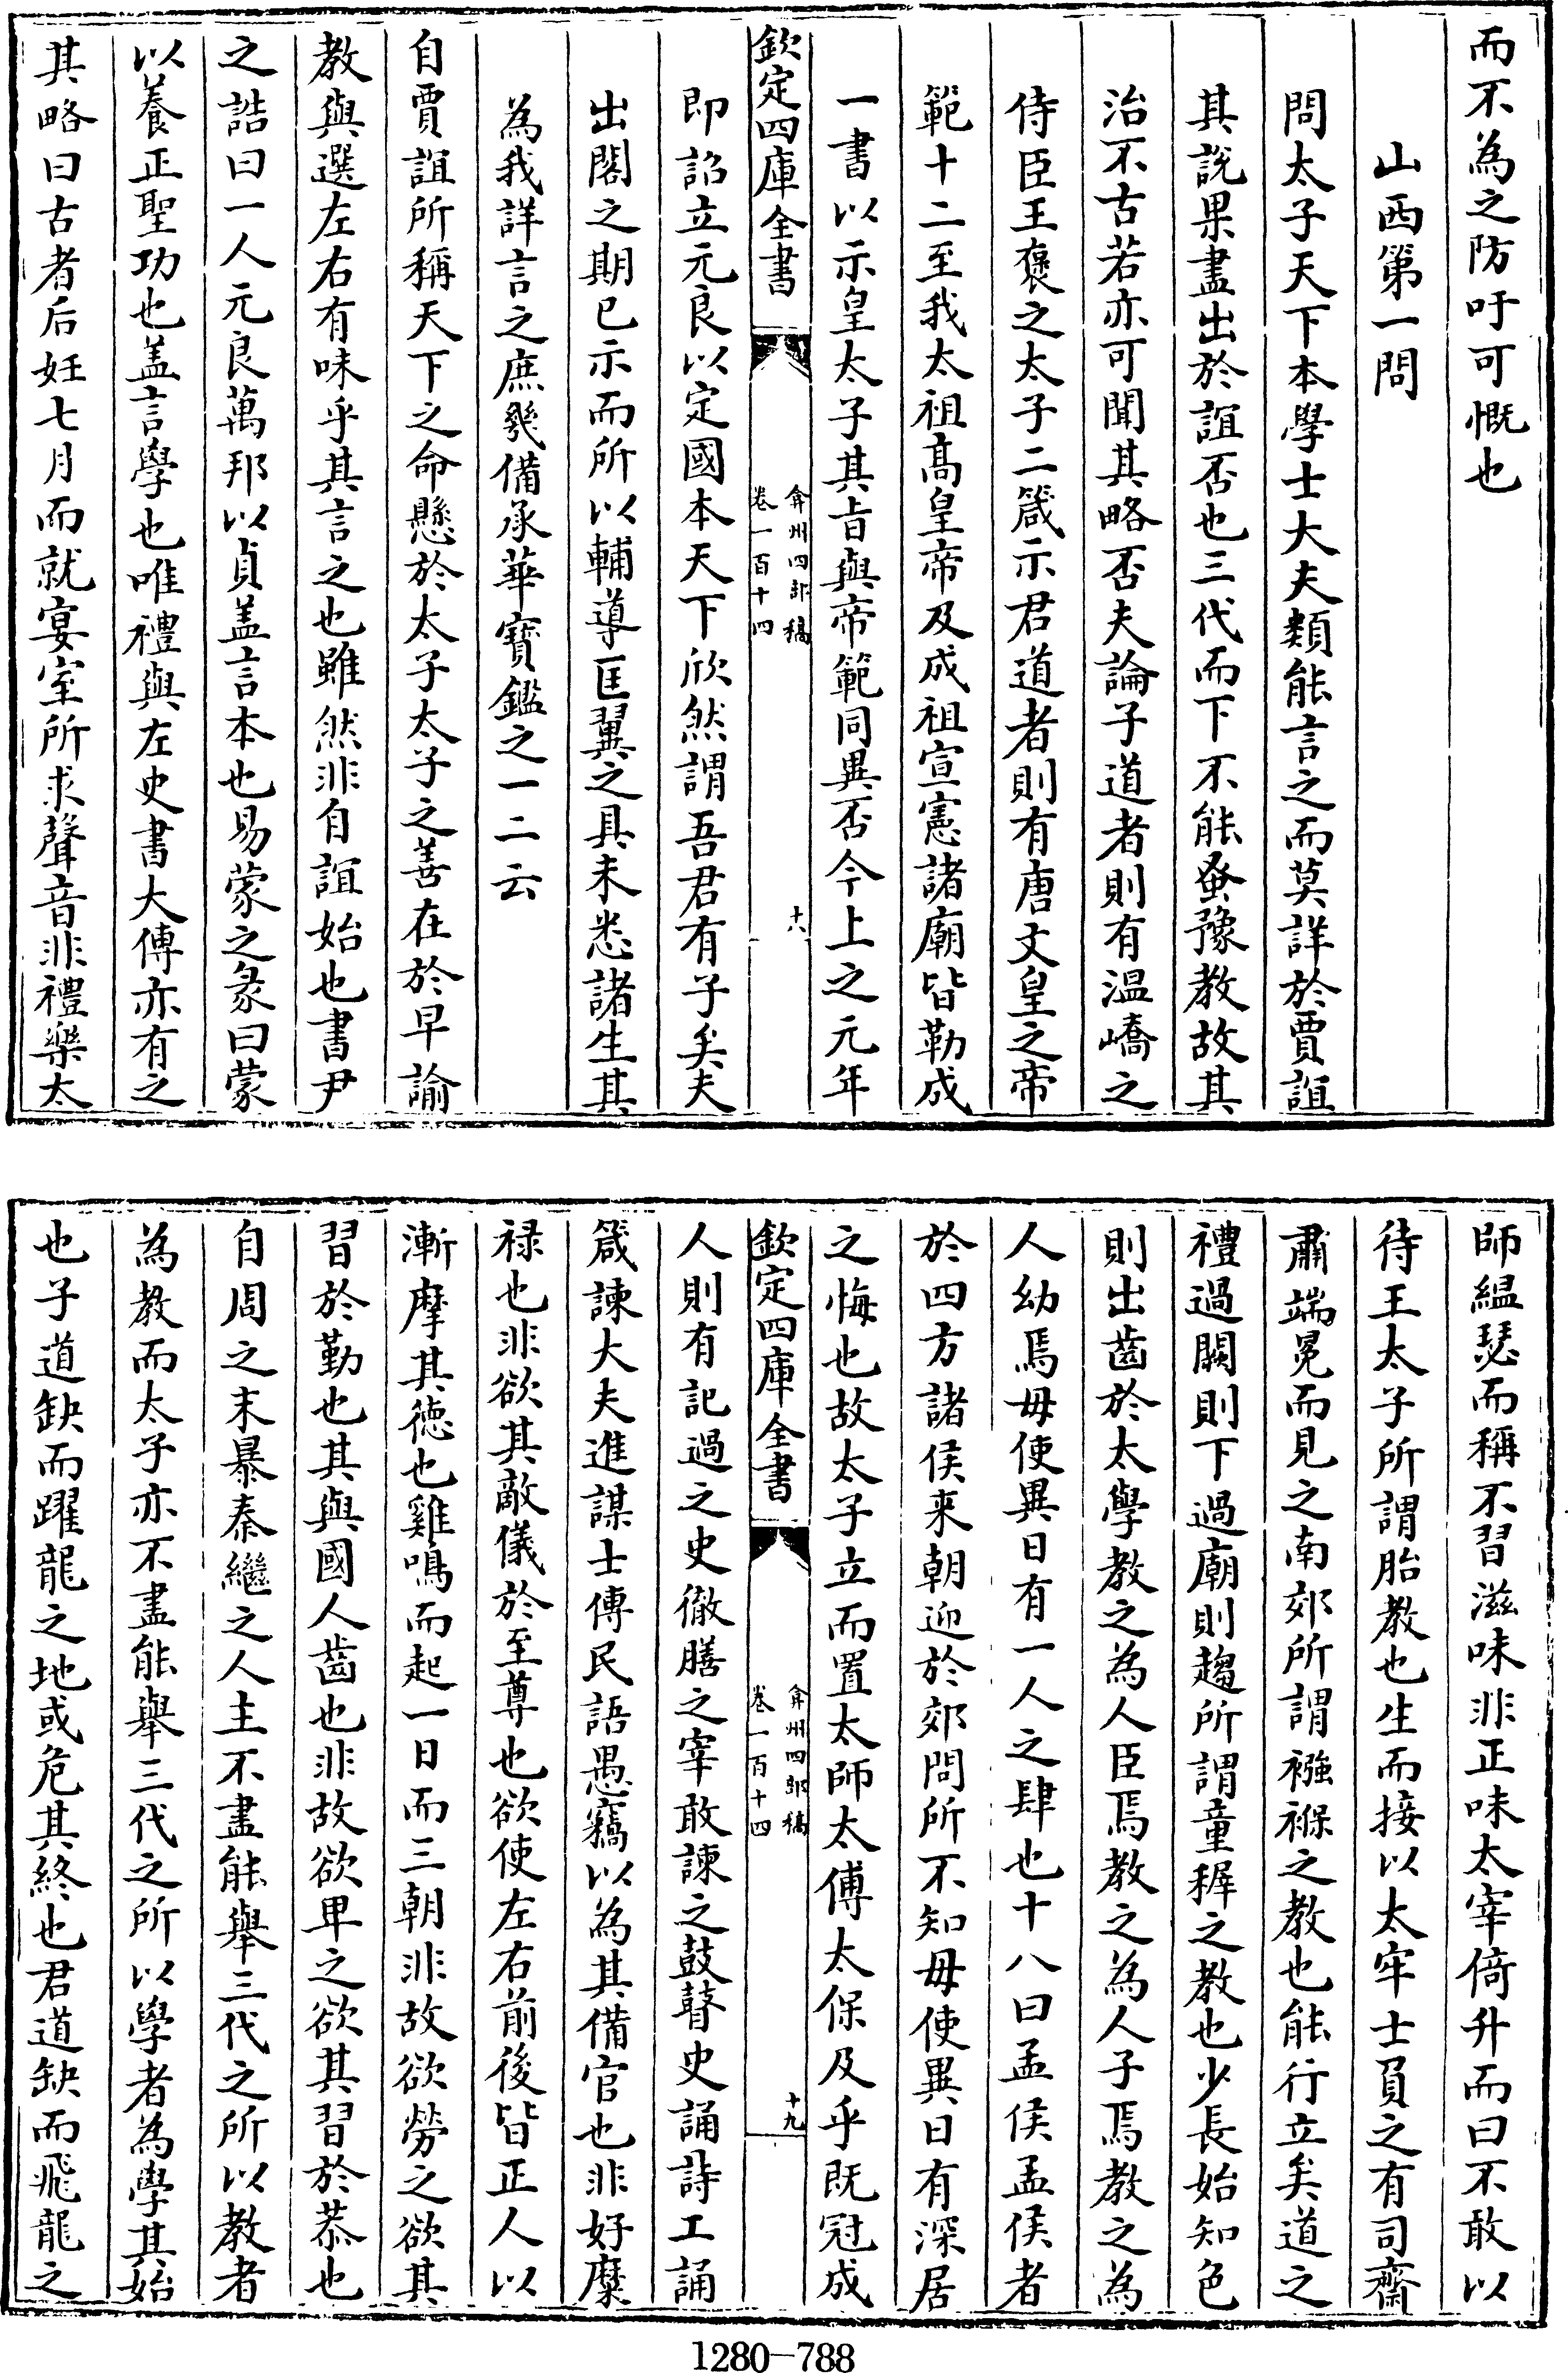 而不為之防吁可慨也
山西第一問
問太子天下本學士大夫類能言之而莫詳於賈誼
其說果盡出於誼否也三代而下不能蚤豫教故其
治不古若亦可聞其略否夫論子道者則有温嶠之
侍臣王褒之太子二箴示君道者則有唐文皇之帝
範十二至我太祖高皇帝及成祖宣憲諸廟皆勒成
一書以示皇太子其旨與帝範同異否今上之元年
欽定四庫全書
弇州四部稿
卷一百十四
十八
即詔立元良以定國本天下欣然謂吾君有子矣夫
出閣之期已示而所以輔導匡翼之具未悉諸生其
為我詳言之庶幾備承華寶鑑之一二云
自賈誼所稱天下之命懸於太子太子之善在於早諭
教與選左右有味乎其言之也雖然非自誼始也書尹
之誥曰一人元良萬邦以貞盖言本也易蒙之彖曰蒙
以養正聖功也盖言學也唯禮與左史書大傅亦有之
其略曰古者后妊七月而就宴室所求聲音非禮樂太
師緼瑟而稱不習滋味非正味太宰倚升而曰不敢以
待王太子所謂胎教也生而接以太牢士負之有司齋
肅端冕而見之南郊所謂襁褓之教也能行立矣道之
禮過闕則下過廟則趨所謂童穉之教也少長始知色
則出齒於太學教之為人臣焉教之為人子焉教之為
人幼焉毋使異日有一人之肆也十八曰孟侯孟侯者
於四方諸侯来朝迎於郊問所不知毋使異日有深居
之悔也故太子立而置太師太傅太保及乎既冠成
欽定四庫全書
弇州四部稿
卷一百十四
十九
人則有記過之史徹膳之宰敢諫之鼓瞽史誦詩工誦
箴諫大夫進謀士傳民語愚竊以為其備官也非好糜
禄也非欲其敵儀於至尊也欲使左右前後皆正人以
漸摩其徳也雞鳴而起一日而三朝非故欲勞之欲其
習於勤也其與國人齒也非故欲卑之欲其習於恭也
自周之末暴秦繼之人主不盡能舉三代之所以教者
為教而太子亦不盡能舉三代之所以學者為學其始
也子道缺而躍龍之地或危其終也君道缺而飛龍之
1280-788